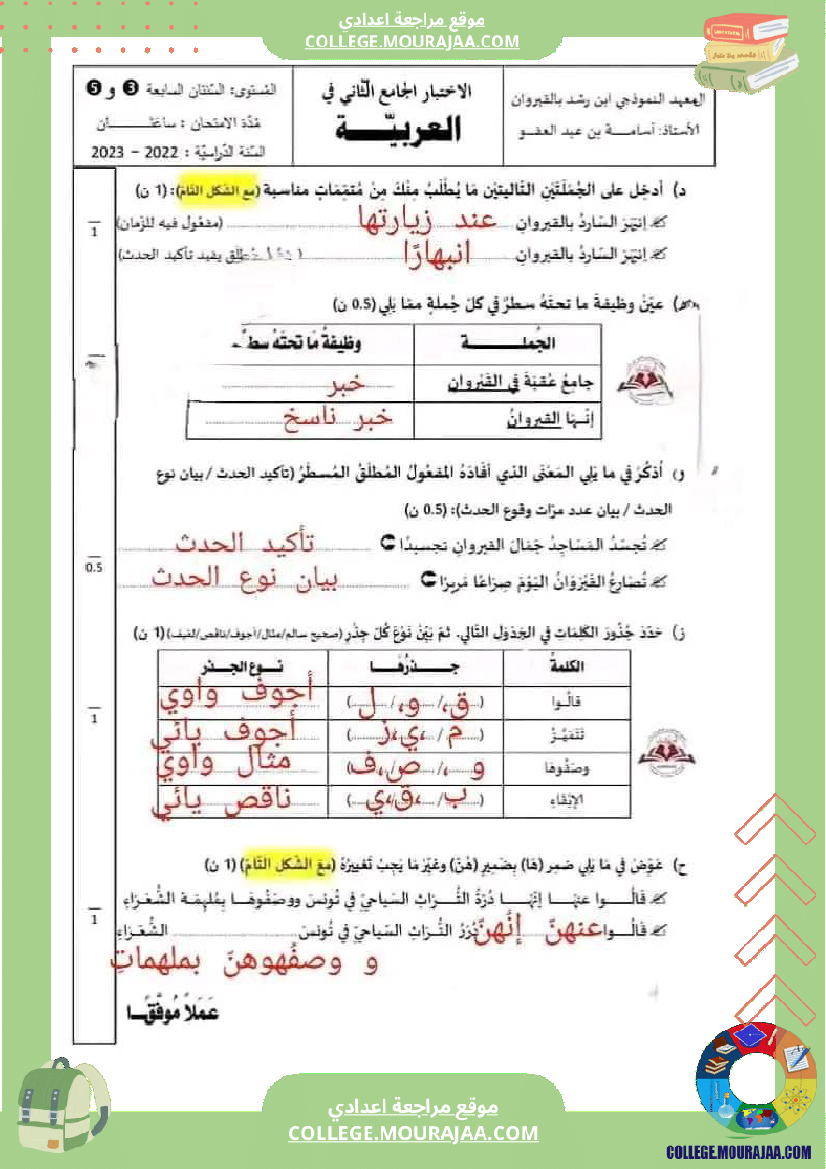 موقع مراجعة اعدادي
COLLEGE.MOURAJAA.COM
المعهد النموذجي ابن رشد بالقيروان
الأستاذ: أسامـــة بن عبد العفـو
الاختبار الجامع الثّاني في
العربيّـــة
المُستوى: السّنتان السابعة 3 و 5
مُدّة الامتحان : ساعتـــان
السنة الدّراسيّة : 2022 – 2023
د) أدخِل على الجُمْلَتَيْنِ التّاليتيْن مَا يُطْلَبُ مِنْكَ مِنْ مُتمِّمَاتٍ مناسبة (مع الشّكل التّامّ): (1 ن)
اِنبَهَرَ السّاردُ بالقيروانِ عند زيارتها (مفعول فيه للزّمان)
1
اِنبَهَرَ السّاردُ بالقيروانِ انبهارًا يفيد تأكيد الحدث)
عيّنْ وظيفةَ ما تحتَهُ سطرٌ في كلّ جُملةٍ ممّا يَلِي (0.5 ن)
الجُملـــــة
وظيفةُ مَا تحتَهُ سطـ
جامِعُ عُقبَةَ في القَيْروانِ
خبر
إنّـهَا القيروانُ
خبر ناسخ
و) اُذكُرْ في ما يَلِي المَعْنَى الذي أفَادَهُ المَفعُولُ المُطلَقُ المُسطّرُ (تأكيد الحدث / بيان نوع
الحدث / بيان عدد مرّات وقوع الحدث): (0.5 ن)
تُجسّدُ المَسَاجِدُ جَمَالَ القيروانِ تجسيدًا تأكيد الحدث
0.5
تُصَارِعُ القَيْرَوَانُ اليَوْمَ صِرَاعًا مَرِيرًا بيان نوع الحدث
ز) حَدّدْ جُذُورَ الكَلِمَاتِ في الجَدْوَلِ التّالي. ثمّ بَيّنْ نَوْعَ كُلّ جِذْرٍ (صحيح سالم/مثال/أجوف/ناقص/لفيف) (1 ن)
الكلمةُ
جــذرُهَــا
نـــوع الجـذر
قالُـوا
(ق،/ و،/ ل)
أجوف واوي
1
تَتَميّـزُ
(م / ،ي، ز)
أجوف يائي
وصَفُوهَا
(و ،/ ص،ف)
مثال واوي
الإبْقَاءِ
(ب،/ ق،ي)
ناقص يائي
ح) عَوّضْ في مَا يَلِي ضمير (هَا) بِضَمِيرِ (هُنّ) وغيّرْ مَا يَجِبُ تَغْييرُهُ (مَعَ الشّكل التّامّ) (1 ن)
قَالُـــوا عَنهَـــا إنّهَـــا دُرّةُ التُّـــرَاثِ السّيَاحِيّ في تُونسَ ووصَفُوهَـا بِمُلهِمَة الشُّعَـرَاءِ
1
قَالُـــوا عنهنّ إنّهنّ دُرَرُ التُّـــرَاثِ السّيَاحِيّ في تُونسَ الشُّعَـرَاءِ
و وصفُهوهنّ بملهماتِ
عَمَلاً مُوفّقًـــا
موقع مراجعة اعدادي
COLLEGE.MOURAJAA.COM
COLLEGE.MOURAJAA.COM